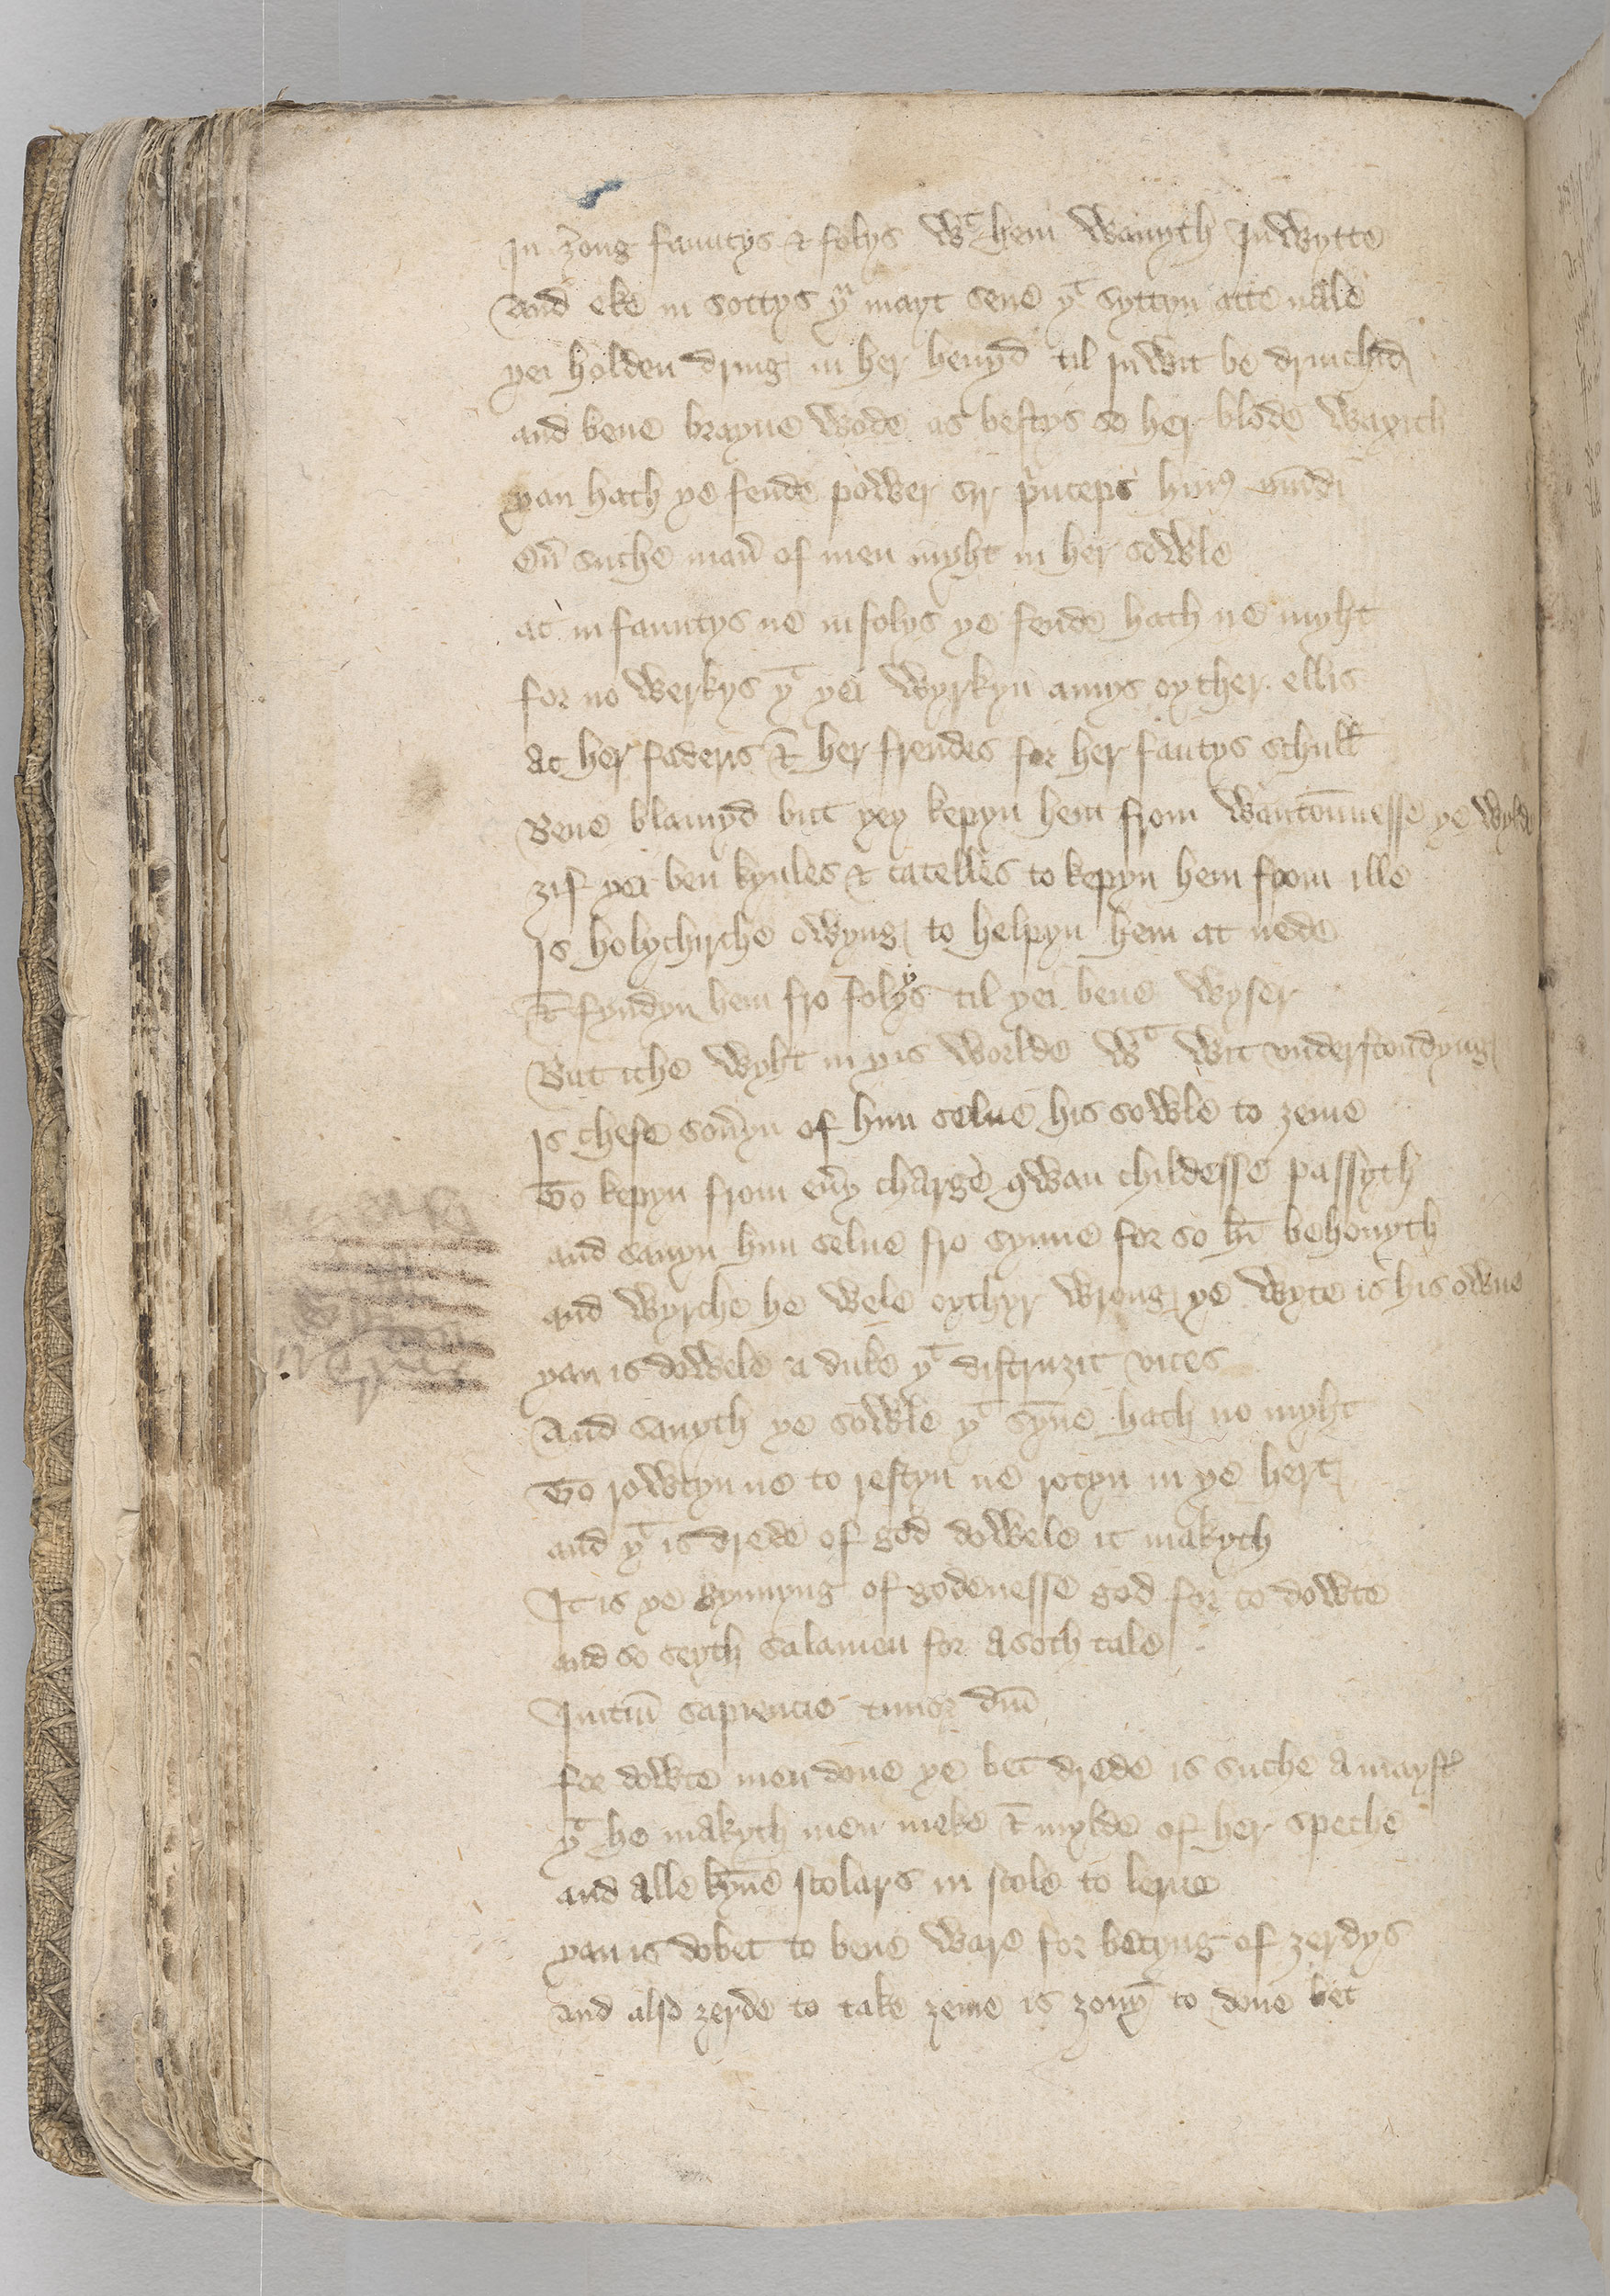 In ȝong fauntys & folys wᵗ hem wanyth Inwytte
And eke in sottys yᵘ mayt sene yᵗ syttyn atte nale
yei holden dring in her heuyd til Inwit be drinchid
and bene brayne wode as bestys so her blode waxith
yan hath ye fende power syr p'nceps huiꝯ mūdi
Ou̅ suche man̅ of men myht in her sowle
at in fauntys ne in folys ye fende hath ne myht
for no werkys yᵗ yei wyrkyn amys oyther ellis
At her faderis & her frendes for her fautys schull
Bene blamyd but yey kepyn hem from wantōnnesse ye wylde
ȝif yei ben kynles & catelles to kepyn hem from ille
Is holychirche owyng to helpyn hem at nede
& fyndyn hem fro folys til yei bene wyser
But iche wyht in yis worlde wᵗ wit vnderstondyng
Is chefe sou̅yn of him selue his sowle to ȝeme
To kepyn from eu̅y charge qwan childesse passyth
and sauyn him selue fro synne for so hī behouyth
and wyrche he wele oythyr wrong ye wyte is his owne
yan is dowele a duke yᵗ distruȝit vices
And sauyth ye sowle yᵗ syn̅e hath no myht
To rowtyn ne to restyn ne rotyn in ye hert
and yᵗ is drede of god dowele it makyth
It is ye gynnyng of godenesse god for to dowte
and so seyth salamon for a soth tale
Initiū sapiencie timor dn̅i
for dowte men done ye bet drede is suche a mayst'
yᵗ he makyth men meke & mylde of her speche
and alle kyn̅e scolars in scole to lerne
yan is dobet to bene ware for betyng of ȝerdys
and also ȝerde to take ȝeme is to done bet